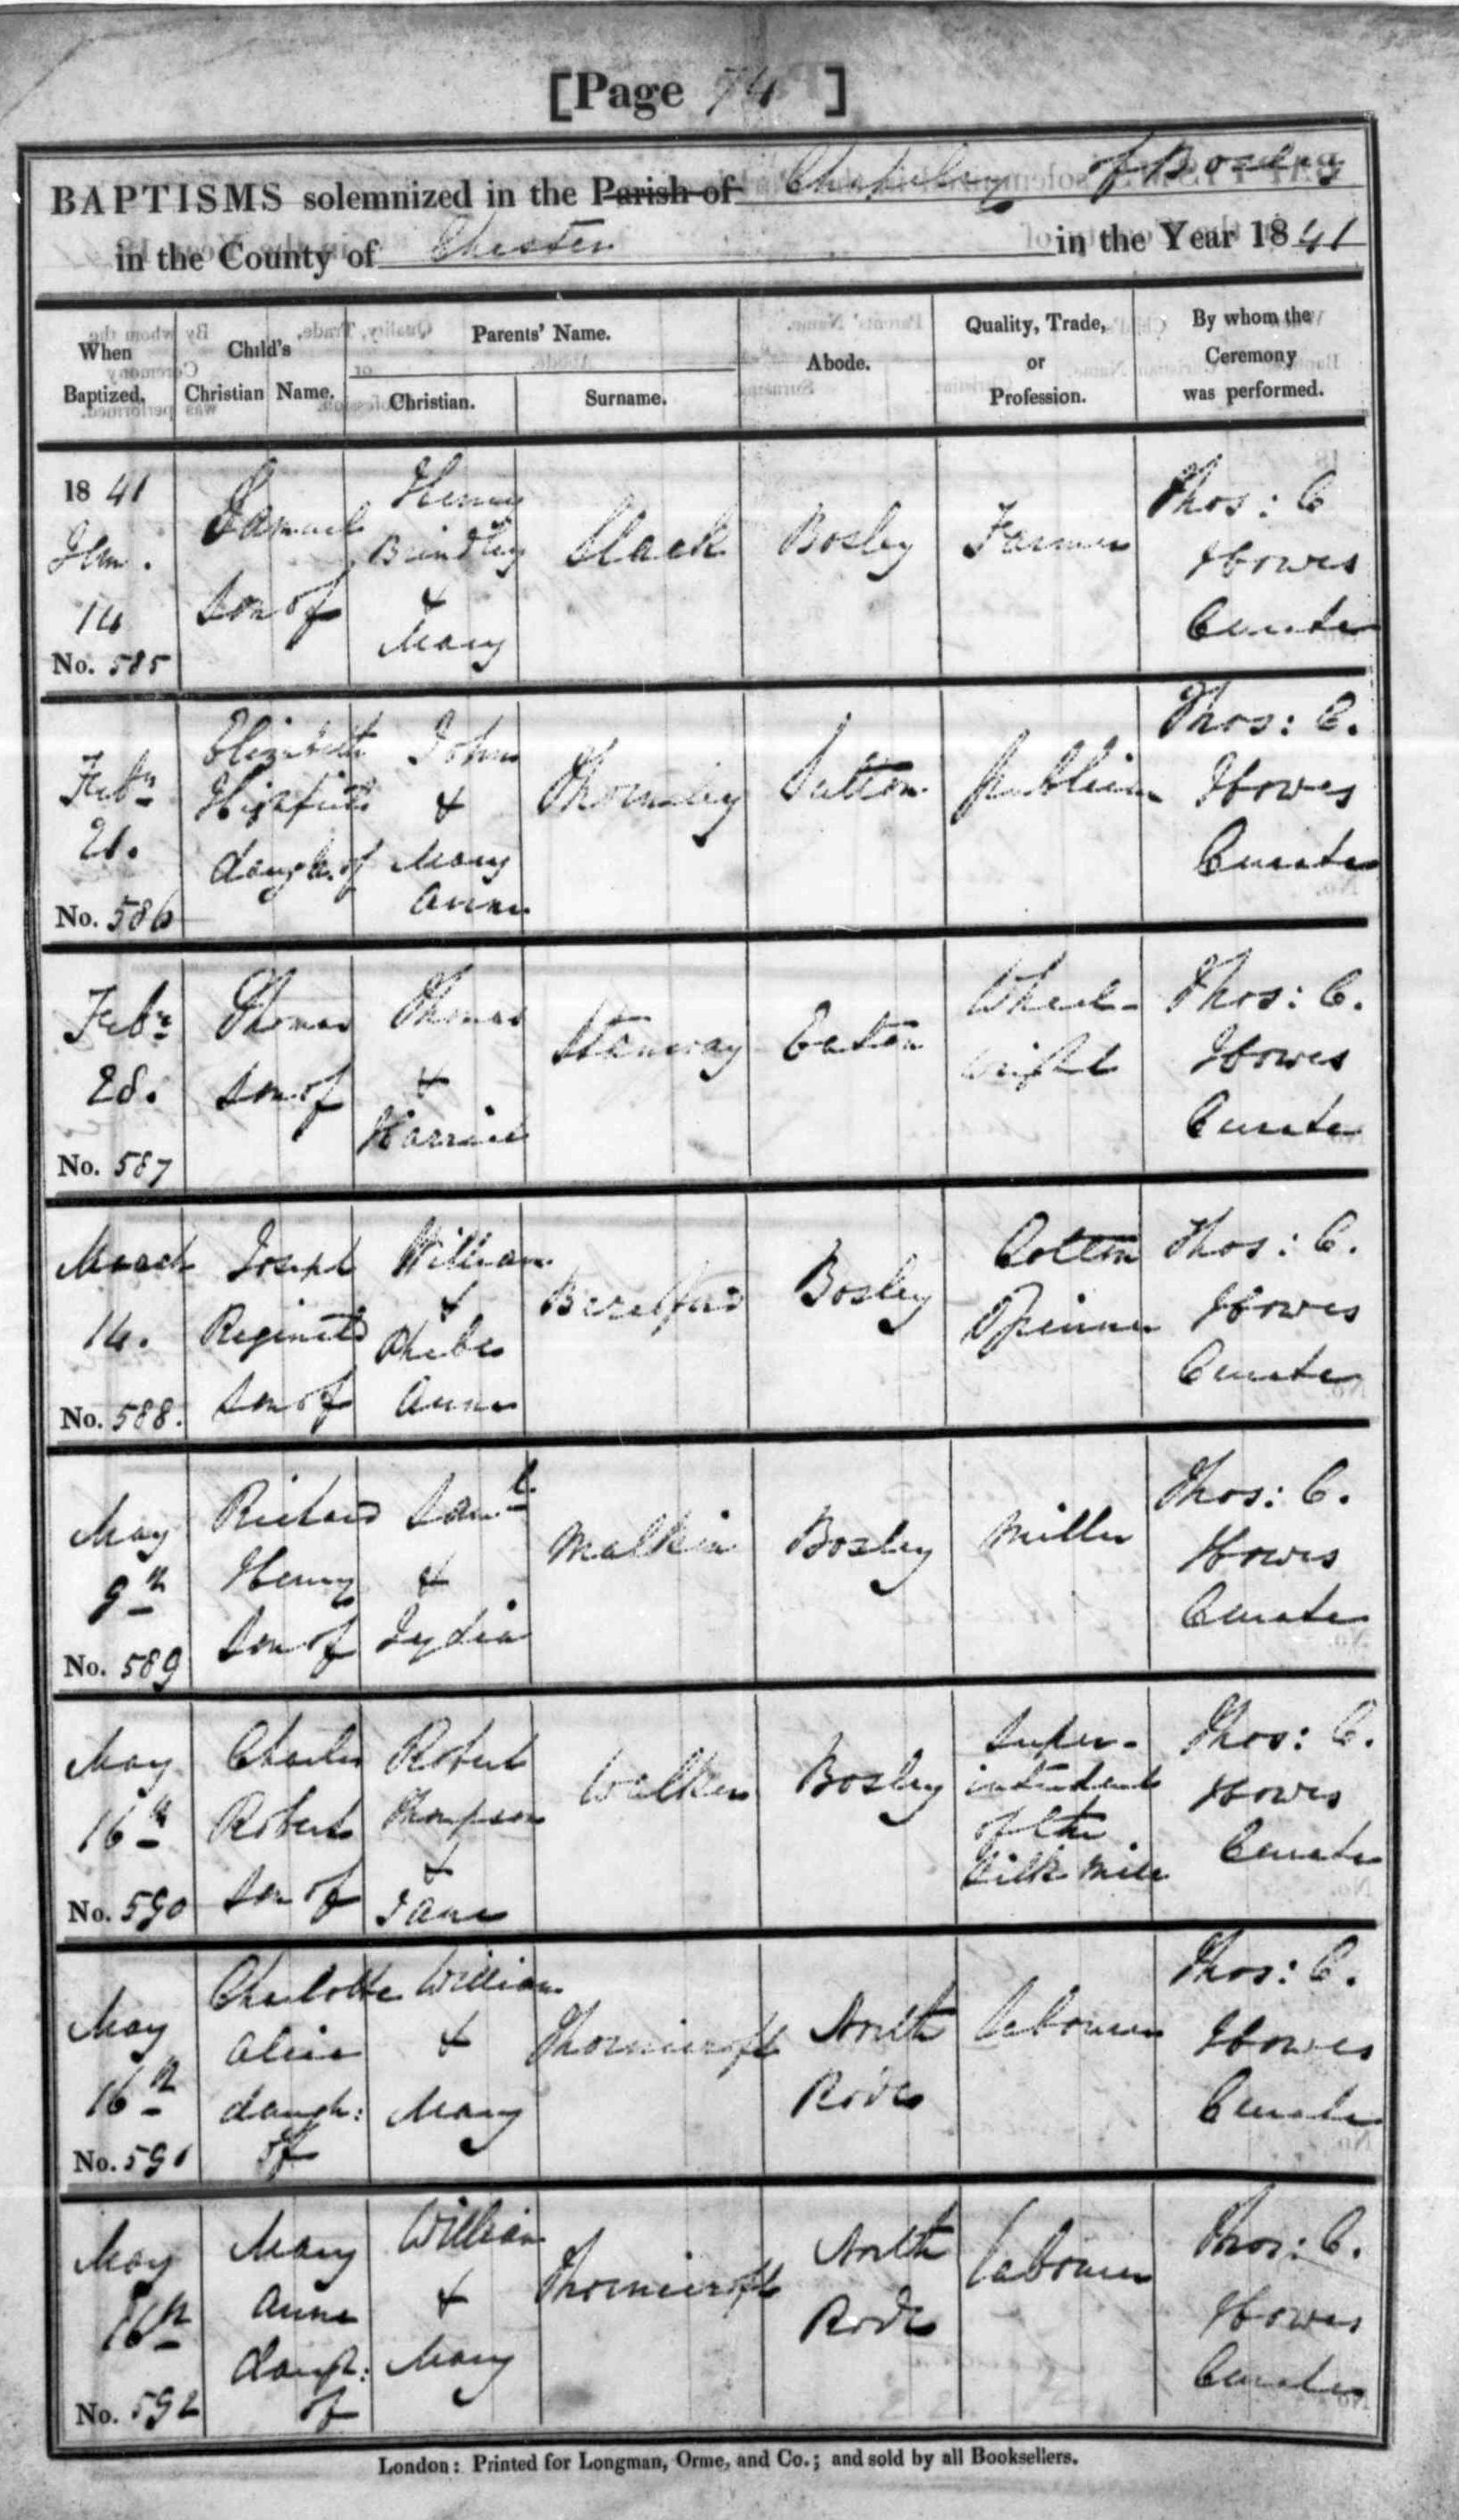 [Page 74]
BAPTISMS solemnized in the Parish of Chapelry of Bosley
in the County of Chester in the Year 1841
When Baptized.
Child's Christian Name.
Parents' Name.
Christian.
Surname.
Abode.
Quality, Trade, or Profession.
By whom the Ceremony was performed.
1841
Jan.
14
No. 585
Samuel
son of
Henry
Brindley
&
Mary
Slack
Bosley
Farmer
Thos: C
Howes
Curate
Feby
21.
No. 586
Elizabeth
Highfield
daugh. of
John
&
Mary
Anne
Thornley
Sutton
Publican
Thos: C.
Howes
Curate
Feby
28.
No. 587
Thomas
son of
Thomas
&
Harriet
Stanway
Eaton
Wheel-
wright
Thos: C.
Howes
Curate
March
14.
No. 588.
Joseph
Reginald
son of
William
&
Phebe
Anne
Beresford
Bosley
Cotton
Spinner
Thos: C.
Howes
Curate
May
9th
No. 589
Richard
Henry
son of
Saml.
&
Lydia
Malkin
Bosley
Miller
Thos: C.
Howes
Curate
May
16th
No. 590
Charles
Robert
son of
Robert
Thompson
&
Jane
Walker
Bosley
Super-
intendent
of the
Silk Mill
Thos: C.
Howes
Curate
May
16th
No. 591
Charlotte
Alice
daugh:
of
William
&
Mary
Thornicroft
North
Rode
Labourer
Thos: C.
Howes
Curate
May
16th
No. 592
Mary
Anne
daugh:
of
William
&
Mary
Thornicroft
North
Rode
Labourer
Thos: C.
Howes
Curate
London: Printed for Longman, Orme, and Co.; and sold by all Booksellers.